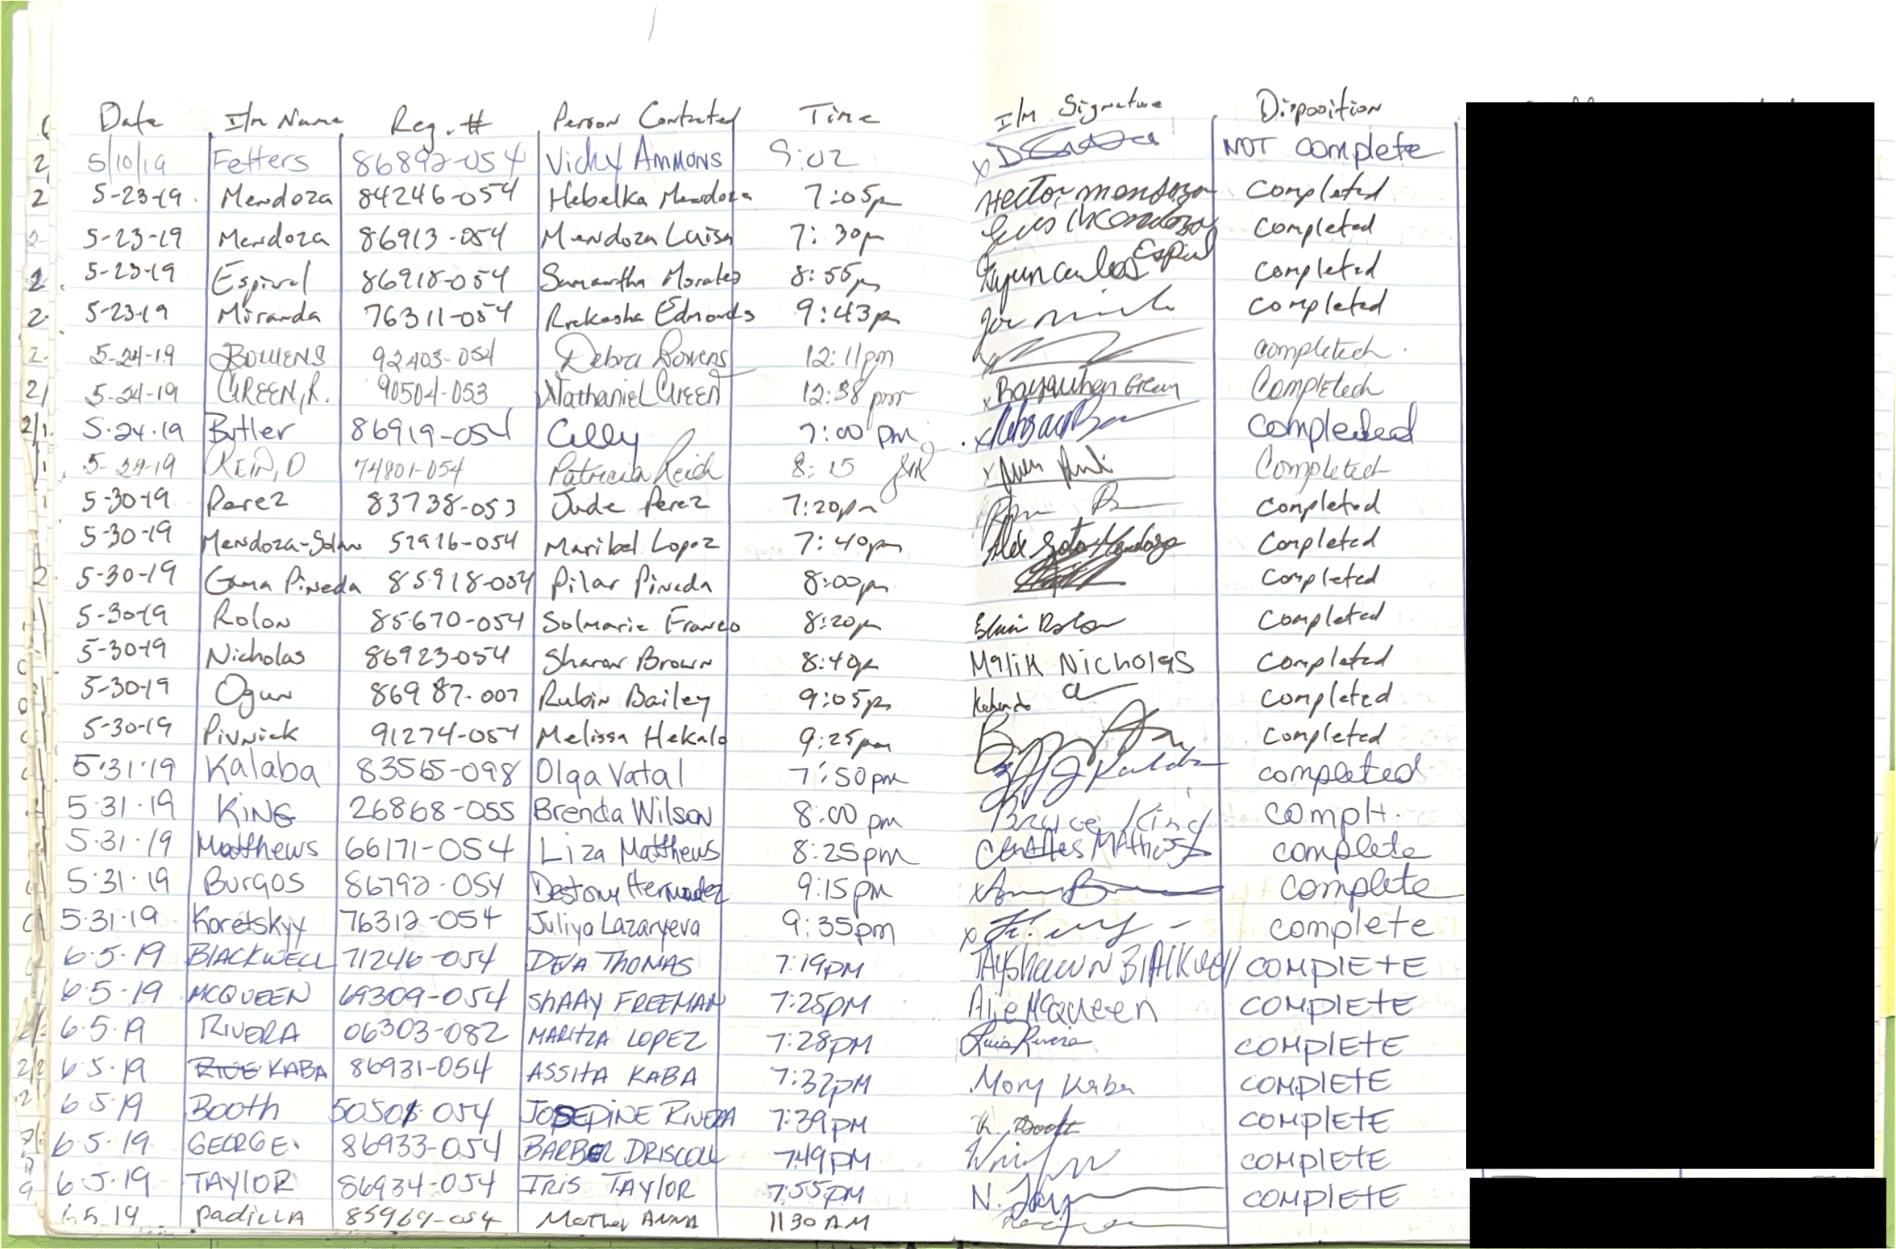 Date I/m Name Reg. # Person Contacted Time I/m Signature Disposition
5/10/19 Fetters 86892-054 Vicky Ammons 9:02 x NOT complete
5-23-19 Mendoza 84246-054 Hebelka Mendoza 7:05pm Hector mendoza Completed
5-23-19 Mendoza 86913-054 Mendoza Luisa 7:30pm Completed
5-23-19 Espinal 86918-054 Samantha Morales 8:55pm Espinal Completed
5-23-19 Miranda 76311-054 Rrekesha Edmonds 9:43pm Completed
5-24-19 BOWENS 92403-054 Debra Bowens 12:11pm completed.
5-24-19 GREEN, R. 90504-053 Nathaniel Green 12:38pm x Green Completed
5.24.19 Butler 86919-054 7:00 pm x Completed
5-29-19 74801-054 Patricia Reid 8:15 x Completed
5-30-19 Perez 83738-053 Jude Perez 7:20pm Completed
5-30-19 52976-054 Maribel Lopez 7:40pm Alex Soto Mendoza Completed
5-30-19 Gama Pineda 85918-054 Pilar Pineda 8:00pm Completed
5-30-19 Rolon 85670-054 Solmarie Franco 8:20pm Completed
5-30-19 Nicholas 86923-054 Sharon Brown 8:40p Malik Nicholas Completed
5-30-19 Ogun 86987-007 Rubin Bailey 9:05pm Completed
5-30-19 Pivnick 91274-054 Melissa Hekalo 9:25pm Completed
5.31.19 Kalaba 83565-098 Olga Vatal 7:50pm completed
5.31.19 KING 26868-055 Brenda Wilson 8:00 pm Bruce King compl.
5.31.19 Matthews 66171-054 Liza Matthews 8:25pm complete
5.31.19 Burgos 86792-054 Destony Hernandez 9:15pm x complete
5.31.19 Koretskyy 76312-054 Juliya Lazaryeva 9:35pm x complete
6.5.19 BLACKWELL 71246-054 DEVA THOMAS 7:19PM TAYSHAWN BlACKWEll COMPLETE
6.5.19 MCQUEEN 69309-054 SHAAY FREEMAN 7:25PM McQueen COMPLETE
6.5.19 RIVERA 06303-082 MARITZA LOPEZ 7:28PM Luis Rivera COMPLETE
6.5.19 KABA 86931-054 ASSITA KABA 7:32PM Mory Kaba COMPLETE
6.5.19 Booth JOSEPINE RIVERA 7:39PM Booth COMPLETE
6.5.19 GEORGE. 86933-054 DRISCOLL 7:49PM COMPLETE
6.5.19 TAYLOR 86934-054 IRIS TAYLOR 7:55PM N. Tay COMPLETE
6.5.19 PadillA 85969-054 Mother ANNA 11 30 AM